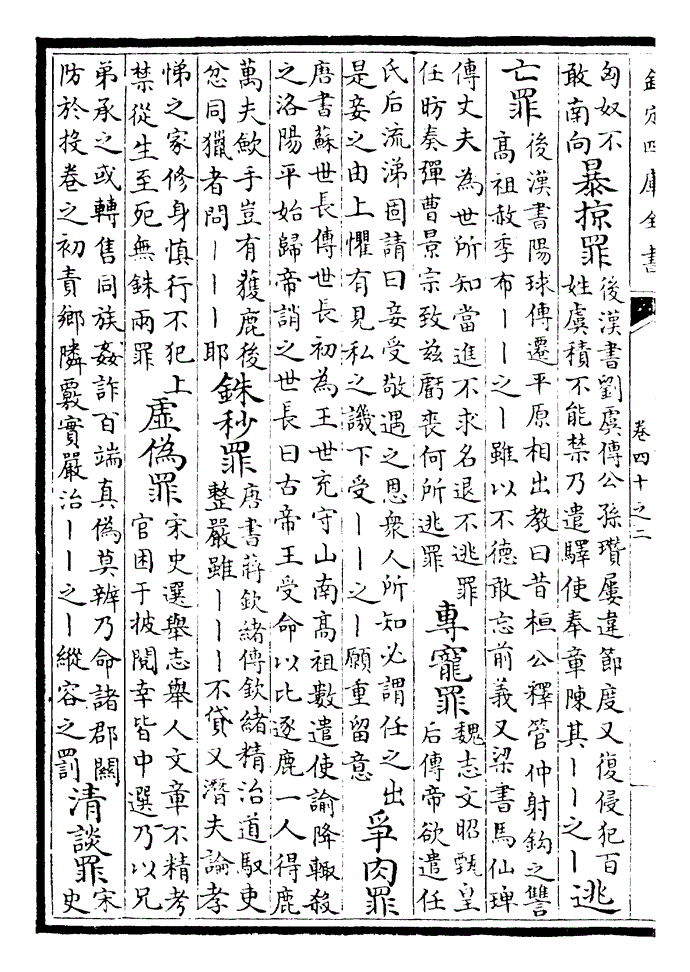 欽定四庫全書
卷四十之二
匈奴不
敢南向
暴掠罪
後漢書劉虞傳公孫瓚屢違節度又復侵犯百
姓虞積不能禁乃遣驛使奉章陳其丨丨之丨
逃
亡罪
後漢書陽球傳遷平原相出教曰昔桓公釋管仲射鈎之讐
高祖赦季布丨丨之丨雖以不德敢忘前義又梁書馬仙琕
傳丈夫為世所知當進不求名退不逃罪
任昉奏彈曹景宗致兹虧喪何所逃罪
專寵罪
魏志文昭甄皇
后傳帝欲遣任
氏后流涕固請曰妾受敬遇之恩衆人所知必謂任之出
是妾之由上懼有見私之譏下受丨丨之丨願重留意
爭肉罪
唐書蘇世長傳世長初為王世充守山南高祖數遣使諭降輙殺
之洛陽平始歸帝誚之世長曰古帝王受命以比逐鹿一人得鹿
萬夫歛手豈有獲鹿後
忿同獵者問丨丨丨耶
銖秒罪
唐書蔣欽緒傳欽緒精治道馭吏
整嚴雖丨丨丨不貸又潛夫論孝
悌之家修身慎行不犯上
禁從生至死無銖兩罪
虛偽罪
宋史選舉志舉人文章不精考
官困于披閱幸皆中選乃以兄
弟承之或轉售同族姦詐百端真偽莫辨乃命諸郡闗
防於投卷之初責鄉隣覈實嚴治丨丨之丨縱容之罰
清談罪
宋
史